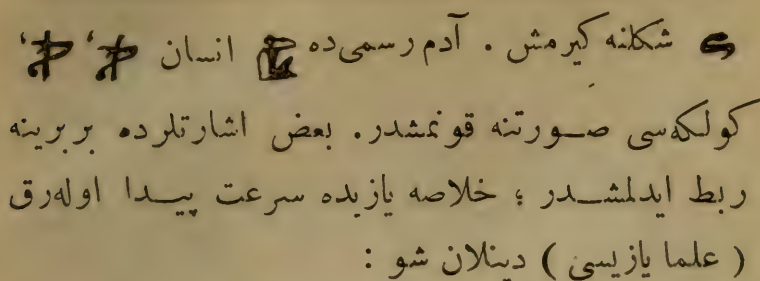 شكلنه كيرمش . آدم رسمى ده انسان
كولكه‌سى صورتنه قونمشدر . بعض اشارتلرده بربرينه
ربط ايدلمشدر ؛ خلاصه يازيده سرعت پيدا اوله‌رق
( علما يازيسى ) دينلان شو :